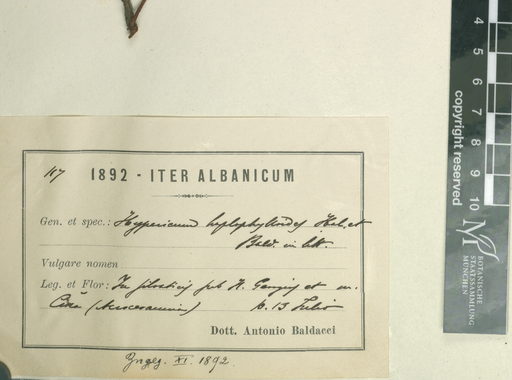 117 1892 - ITER ALBANICUM
Gen. et spec.: Hypericum haplophylloides Hal. et
Bald. in litt.
Vulgare nomen
Leg. et Flor: In silvaticis sub H. et m.
Čika (Acroceraunia) 13 Julio
Dott. Antonio Baldacci
XI. 1892
4
5
6
7
8
9
10
copyright reserved
BOTANISCHE
STAATSSAMMLUNG
MÜNCHEN